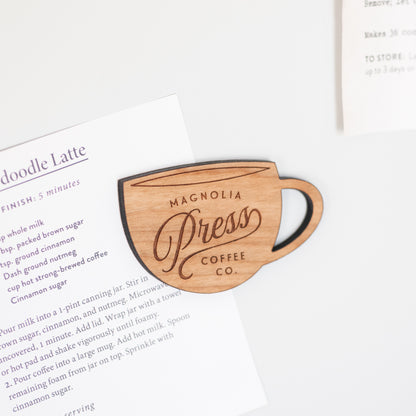 Remove, let
Makes 36 coo
TO STORE: La
up to 3 days or
doodle Latte
FINISH: 5 minutes
p whole milk
bsp. packed brown sugar
tsp. ground cinnamon
Dash ground nutmeg
cup hot strong-brewed coffee
Cinnamon sugar
Pour milk into a 1-pint canning jar. Stir in
own sugar, cinnamon, and nutmeg. Microwave,
uncovered, 1 minute. Add lid. Wrap jar with a towel
or hot pad and shake vigorously until foamy.
2. Pour coffee into a large mug. Add hot milk. Spoon
remaining foam from jar on top. Sprinkle with
cinnamon sugar.
MAGNOLIA
Press
COFFEE
CO.